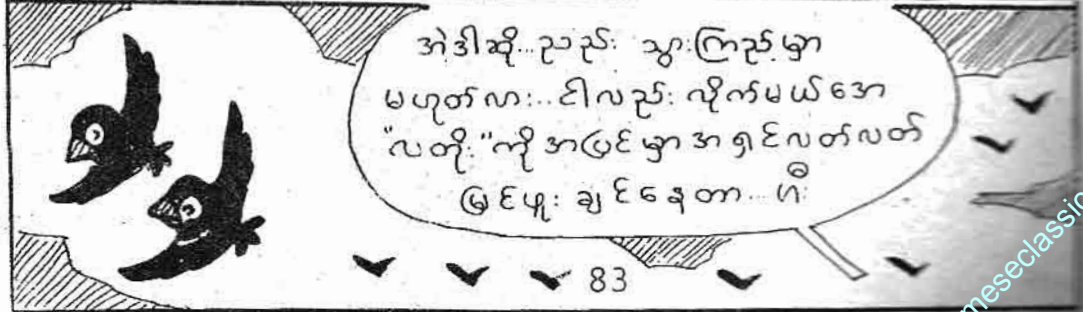 အဲဒါဆို...ညည်း သွားကြည့်မှာ
မဟုတ်လား...ငါလည်း လိုက်မယ်အေ
"လတိုး"ကို အပြင်မှာ အရှင်လတ်လတ်
မြင်ဖူးချင်နေတာ...ဟီး
83
meseclassic